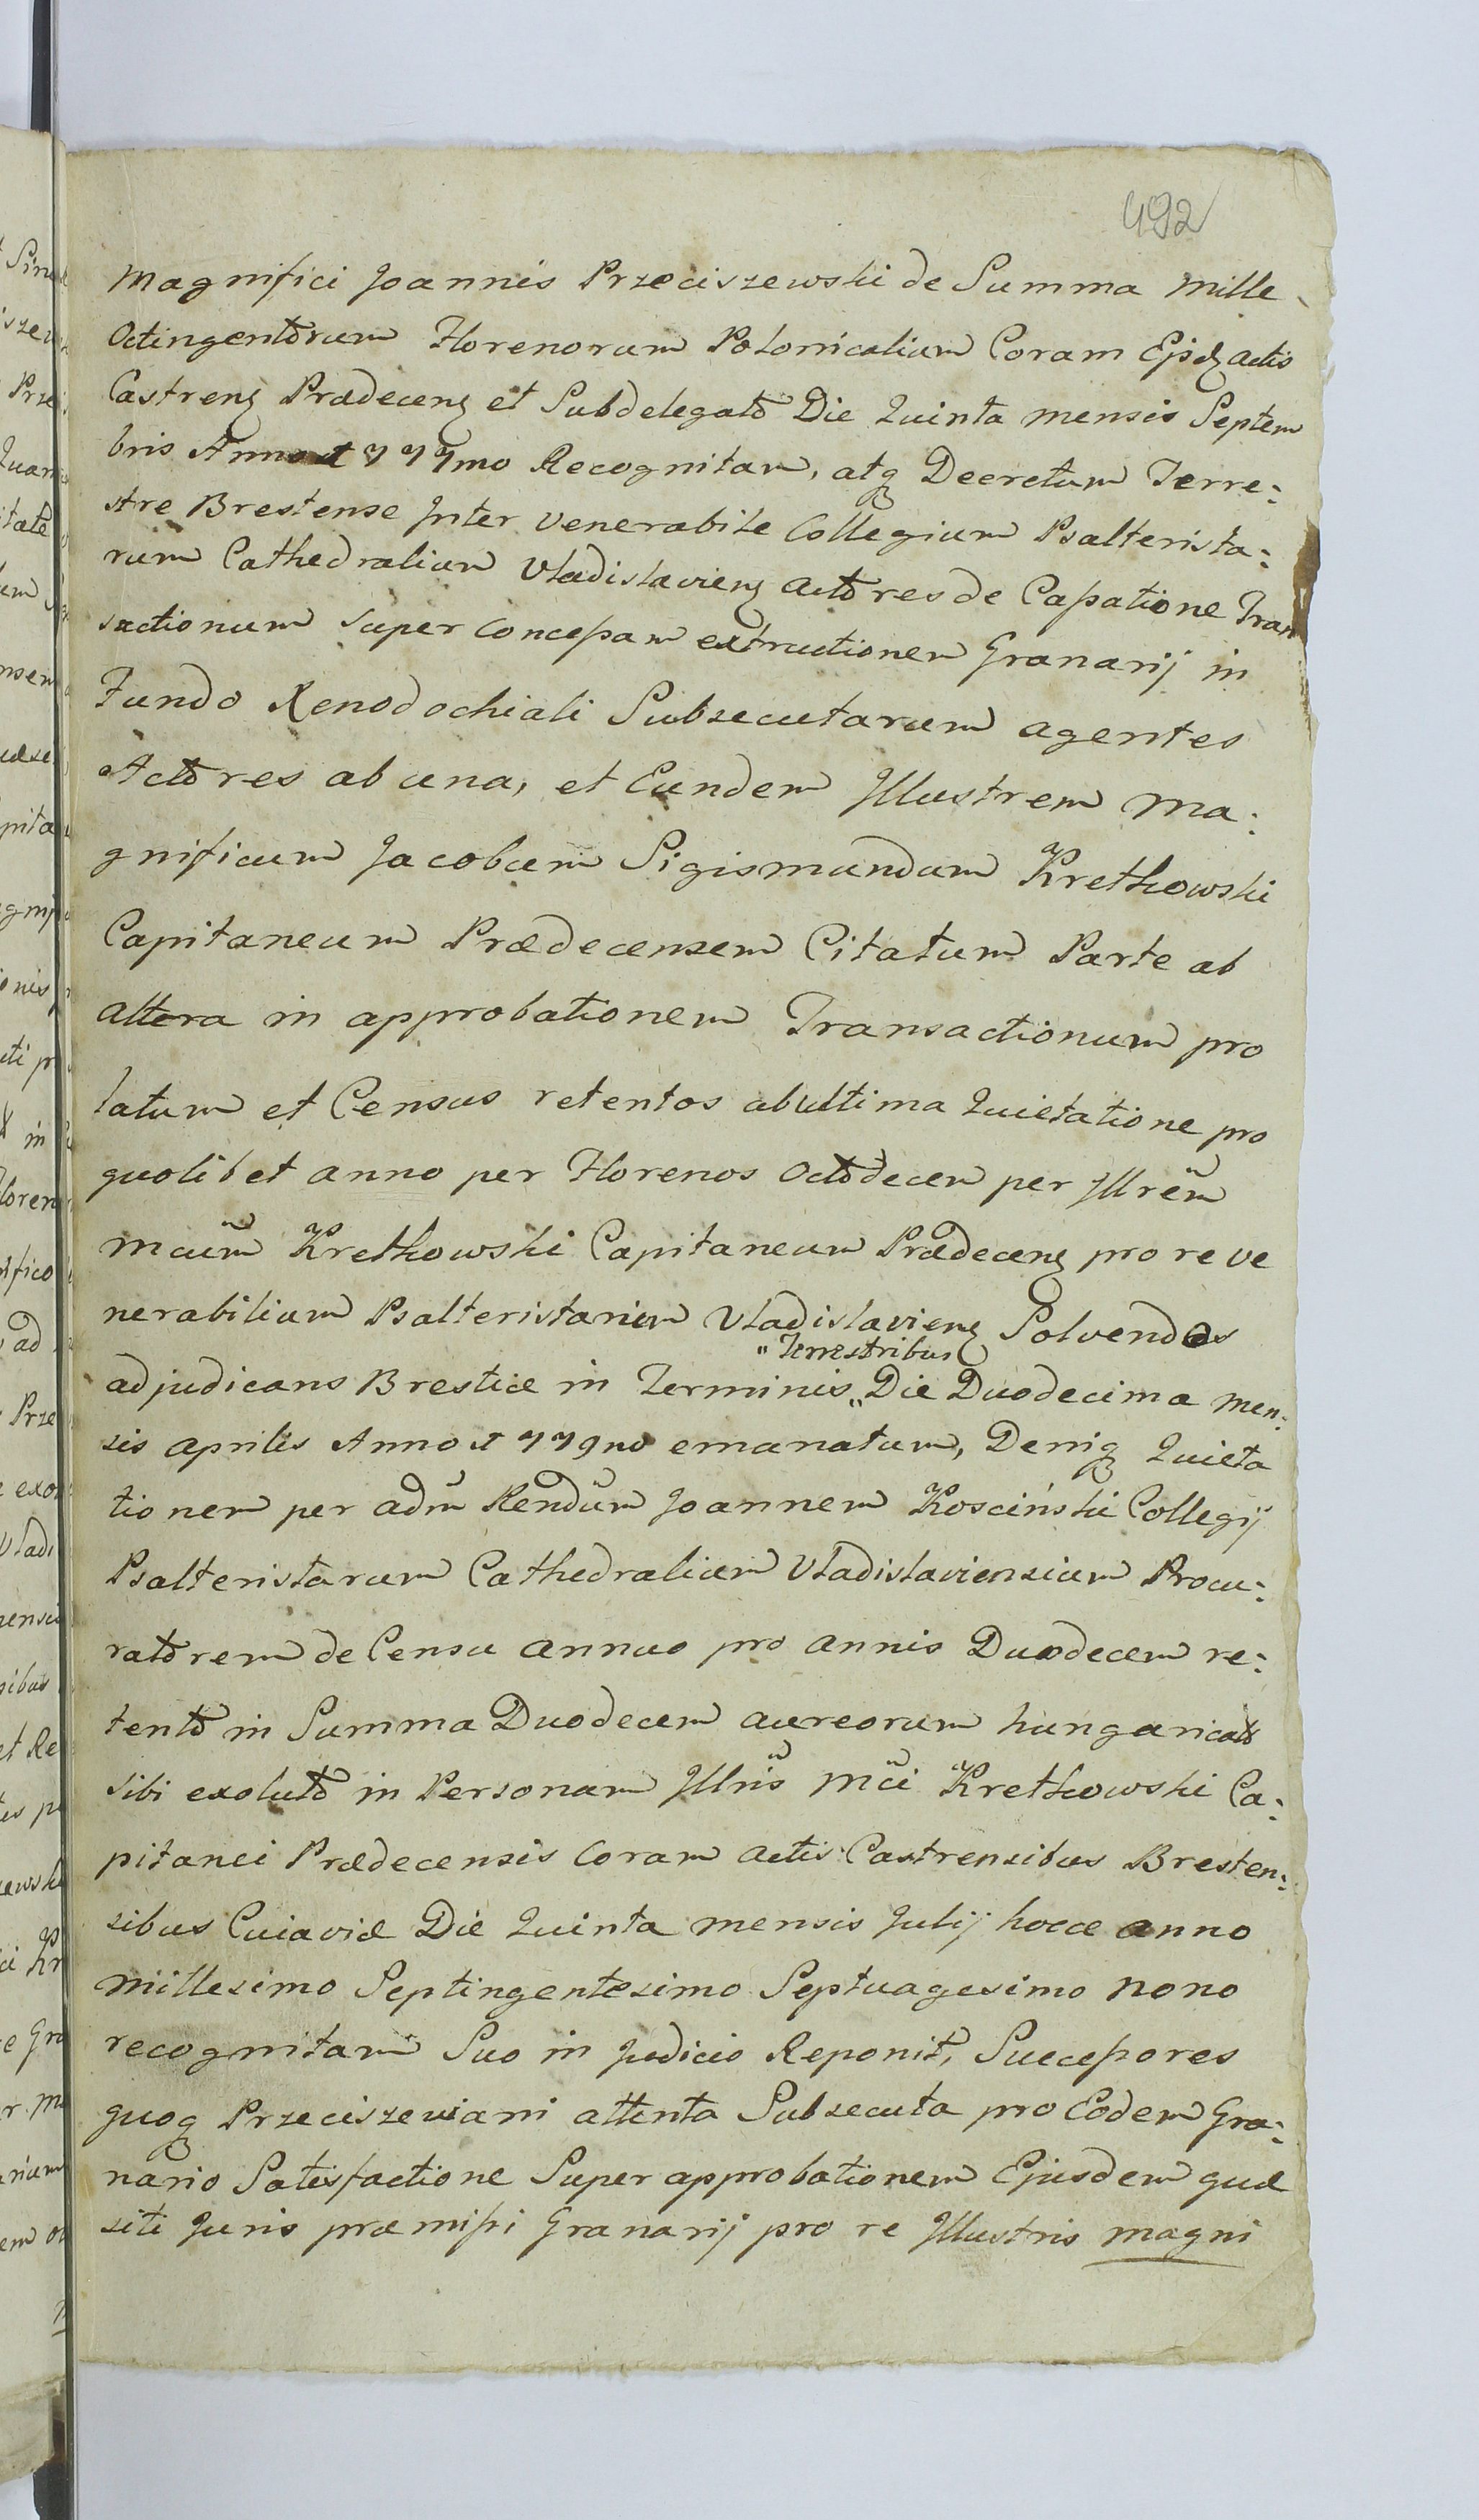 492
Magnifici Joannis Przeciszewski de Summa mille
Octingentorum Florenorum Polonicalium Coram Ejsdꝫ actis
Castrenꝫ Prædecenꝫ et Subdelegato Die Quinta mensis Septem
bris Anno 1777mo Recognitam, atqꝫ Decretum Terre:
stre Brestense Inter Venerabile Collegium Psalterista:
rum Cathedralium Vladislavienꝫ actores de Caſsatione Tran
sactionum super conceſsam extructionem Granarij in
Fundo Xenodochiali Subsecutarum agentes
Actores ab una, et Eundem Illustrem Ma:
gnificum Jacobum Sigismundum Kretkowski
Capitaneum Prædecensem Citatum Parte ab
altera in approbationem Transactionum pro
latum et Census retentos ab ultima Quietatione pro
quolibet anno per Florenos Octodecem per Illrem̃
mcum̃ Kretkowski Capitaneum Prædecenꝫ pro re ve
nerabilium Psalteristarum Vladislavienꝫ Solvendos
" Terrestribus
adjudicans Brestiæ in Terminis,, Die Duodecima men:
sis aprilis Anno 1779no emanatum, Deniqꝫ Quieta
tionem per adm̃ Rendũm Joannem Kosciński Collegij
Psalteristarum Cathedralium Vladislaviensium Procu:
ratorem de Censu annuo pro annis Duodecem re:
tento in Summa Duodecem aureorum hungarical
sibi exoluto in Personam Illris̃ Mci̇̃ Kretkowski Ca:
pitanei Prædecensis Coram actis Castrensibus Bresten:
sibus Cuiaviæ Die Quinta mensis Julij hocce anno
Millesimo Septingentesimo Septuagesimo nono
recognitam Suo in Judicio Reponit, Succeſsores
quoqꝫ Przeciszewiani attenta Subsecuta pro Eodem Gra:
nario Satisfactione Super approbationem Ejusdem quæ
siti Juris præmiſsi Granarij pro re Illustris magni